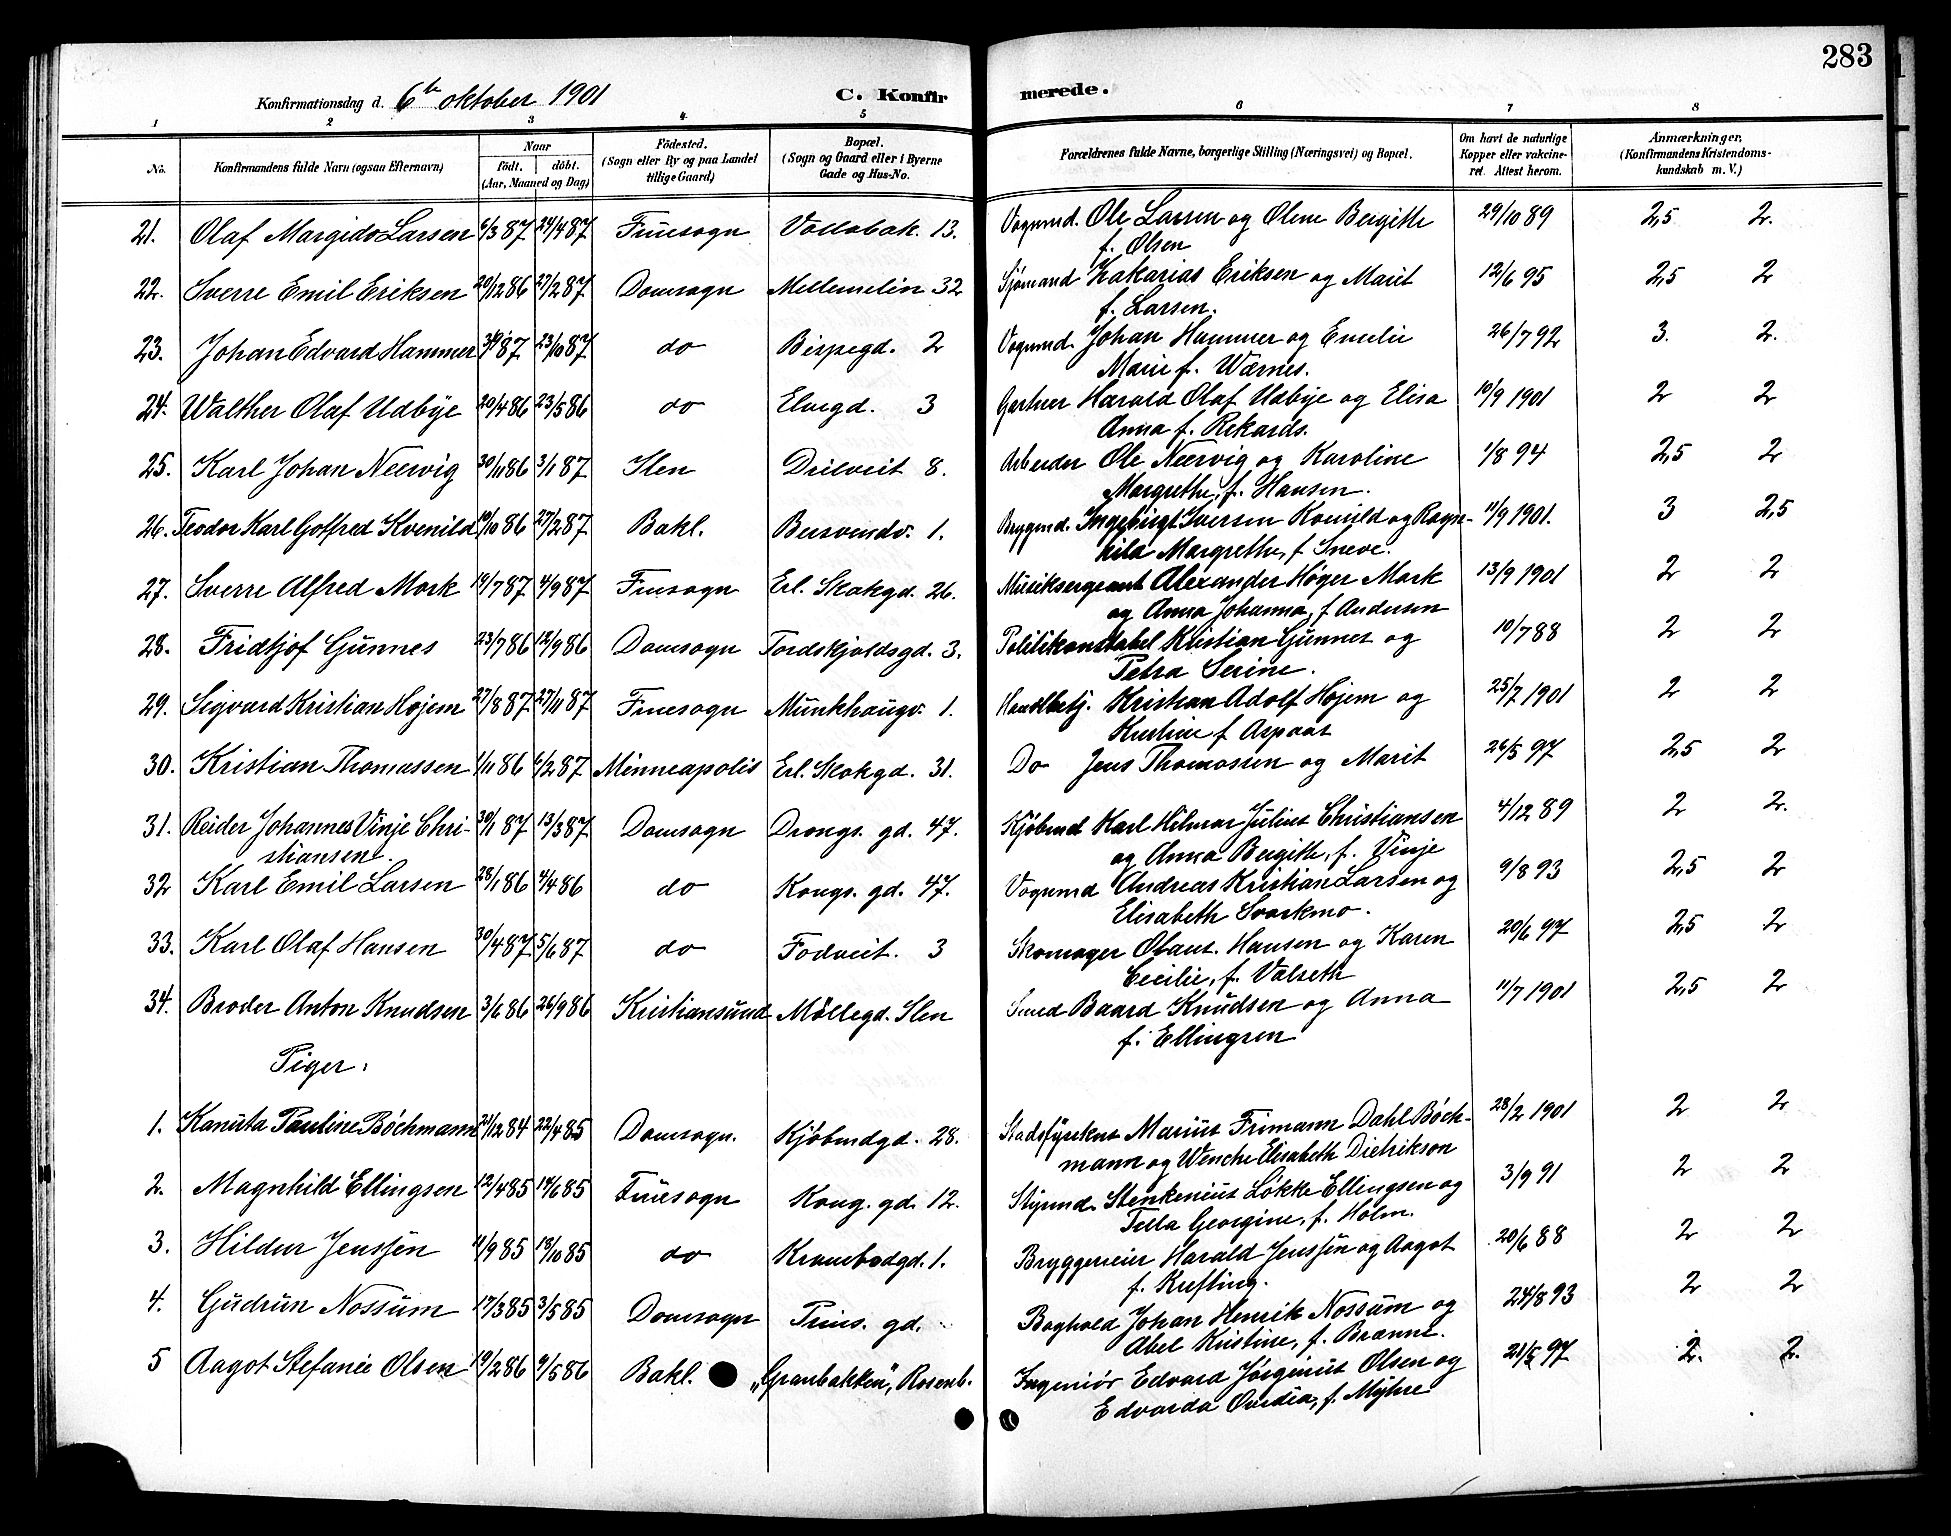 283
Konfirmationsdag d. 6te oktober 1901 C. Konfir merede.
1 2 3 4. 5 6 7 8
No. Konfirmandens fulde Navn (ogsaa Efternavn) Naar født. døbt. (Aar, Maaned og Dag) Fødested. (Sogn eller By og paa Landet tillige Gaard) Bopæl. (Sogn og Gaard eller i Byerne Gade og Hus-No. Forældrenes fulde Navne, borgerlige Stilling (Næringsvei) og Bopæl. Om havt de naturlige Kopper eller vakcineret. Attest herom. Anmærkninger, (Konfirmandens Kristendomskundskab m. V.)
21. Olaf Margido Larsen 6/3 87 24/4 87 Fruesogn Vollabak. 13. Vognmd. Ole Larsen og Oline Bergitte 29/10 89 2,5 2.
f. Olsen
22. Sverre Emil Eriksen 20/12 86 27/2 87 Domsogn Mellemilin 32 Sjømand Zakarias Eriksen og Marit 12/6 95 2,5 2
f. Larsen.
23. Johan Edvard Hammer 87 23/10 87 do Bispegd. 2 Vognmd. Johan Hammer og Emelie 26/7 92 3. 2.
Marie f. Wærnes.
24. Walther Olaf Udbye 20/4 86 23/5 86 do Elvegd. 3 Gartner Harald Olaf Udbye og Elisa 10/9 1901 2 2
Anna f. Rekards.
25. Karl Johan Neervig 30/11 86 3/1 87 Ilen Dueveit 8. Arbeider Ole Neervig og Karoline 1/8 94 2,5 2
Margrethe, f. Hansen.
26. Teodor Karl Gotfred Kvenild 10/10 86 27/2 87 Bakl. Bersvendv. 1. Brygmd. Ingebrigt Iversen Kvenild og Ragn- 11/9 1901. 3 2,5
hild Margrethe, f. Sneve.
27. Sverre Alfred Mork 14/7 87 4/9 87 Fruesogn Erl. Skakgd. 26. Musiksergeant Alexander Høyer Mork 13/9 1901 2 2
og Anna Johanna, f. Andersen
28. Fridtjof Gunnes 23/7 86 12/9 86 Domsogn Tordskjoldsgd. 3. Politikonstabel Kristian Gunnes og 10/7 88 2 2
Petra Serine.
29. Sigvard Kristian Højem 27/8 87 27/11 87 Fruesogn Munkhaugv. 1. Handlbetj. Kristian Adolf Højem og 25/7 1901 2 2
Kristine f Aspaas
30. Kristian Thomassen 1/11 86 6/2 87 Minneapolis Erl. Skakgd. 31. Do Jens Thomassen og Marit 26/5 97 2,5 2
31. Reider Johannes Vinje Chri- 30/1 87 13/3 87 Domsogn Drongs. gd. 47. Kjøbmd Karl Hilmar Julius Christiansen 4/12 89 2 2.
stiansen. og Anna Bergithe, f. Vinje
32 Karl Emil Larsen 28/1 86 4/4 86 do Kongs. gd. 47. Vognmd Andreas Kristian Larsen og 9/8 93 2,5 2
Elisabeth Svorkmo.
33. Karl Olaf Hansen 30/4 87 5/6 87 do Fodveit. 3 Skomager Olaus. Hansen og Karen 20/6 97 2,5 2
Cecilie, f. Valseth
34. Broder Anton Knudsen 3/6 86 26/9 86 Kristiansund Möllegd. Ilen Smed Baard Knudsen og Anna 11/7 1901 2,5 2
f. Ellingsen
Piger.
1. Kanuta Pauline Bóchmann 21/12 84 22/4 85 Domsogn. Kjøbmdgd. 28. Stadsfysikus Marius Frimann Dahl Bóch- 28/2 1901 2 2
mann og Wenche Elisabeth Diedrikson
2. Magnhild Ellingsen 12/4 85 14/6 85 Fruesogn Kong. gd. 12. Styrmd. Stenkenius Løkke Ellingsen og 3/9 91 2 2
Tella Georgine, f. Holm.
3. Hildur Jenssen 11/9 85 18/10 85 do Krambodgd. 1. Bryggerieier Harald Jenssen og Aagot 20/6 88 2 2
f. Kiefling.
4. Gudrun Nossum 17/3 85 3/5 85 Domsogn Prins. gd. Boghold Johan Henrik Nossum og 24/8 93 2 2
Abel Kristine, f. Brænne.
5 Aagot Stefanie Olsen 19/2 86 9/5 86 Bakl. "Granbakken", Rosenb. Ingeniør Edvard Jørginus Olsen og 21/5 97 2. 2.
Edvarda Ovidia, f. Myhre